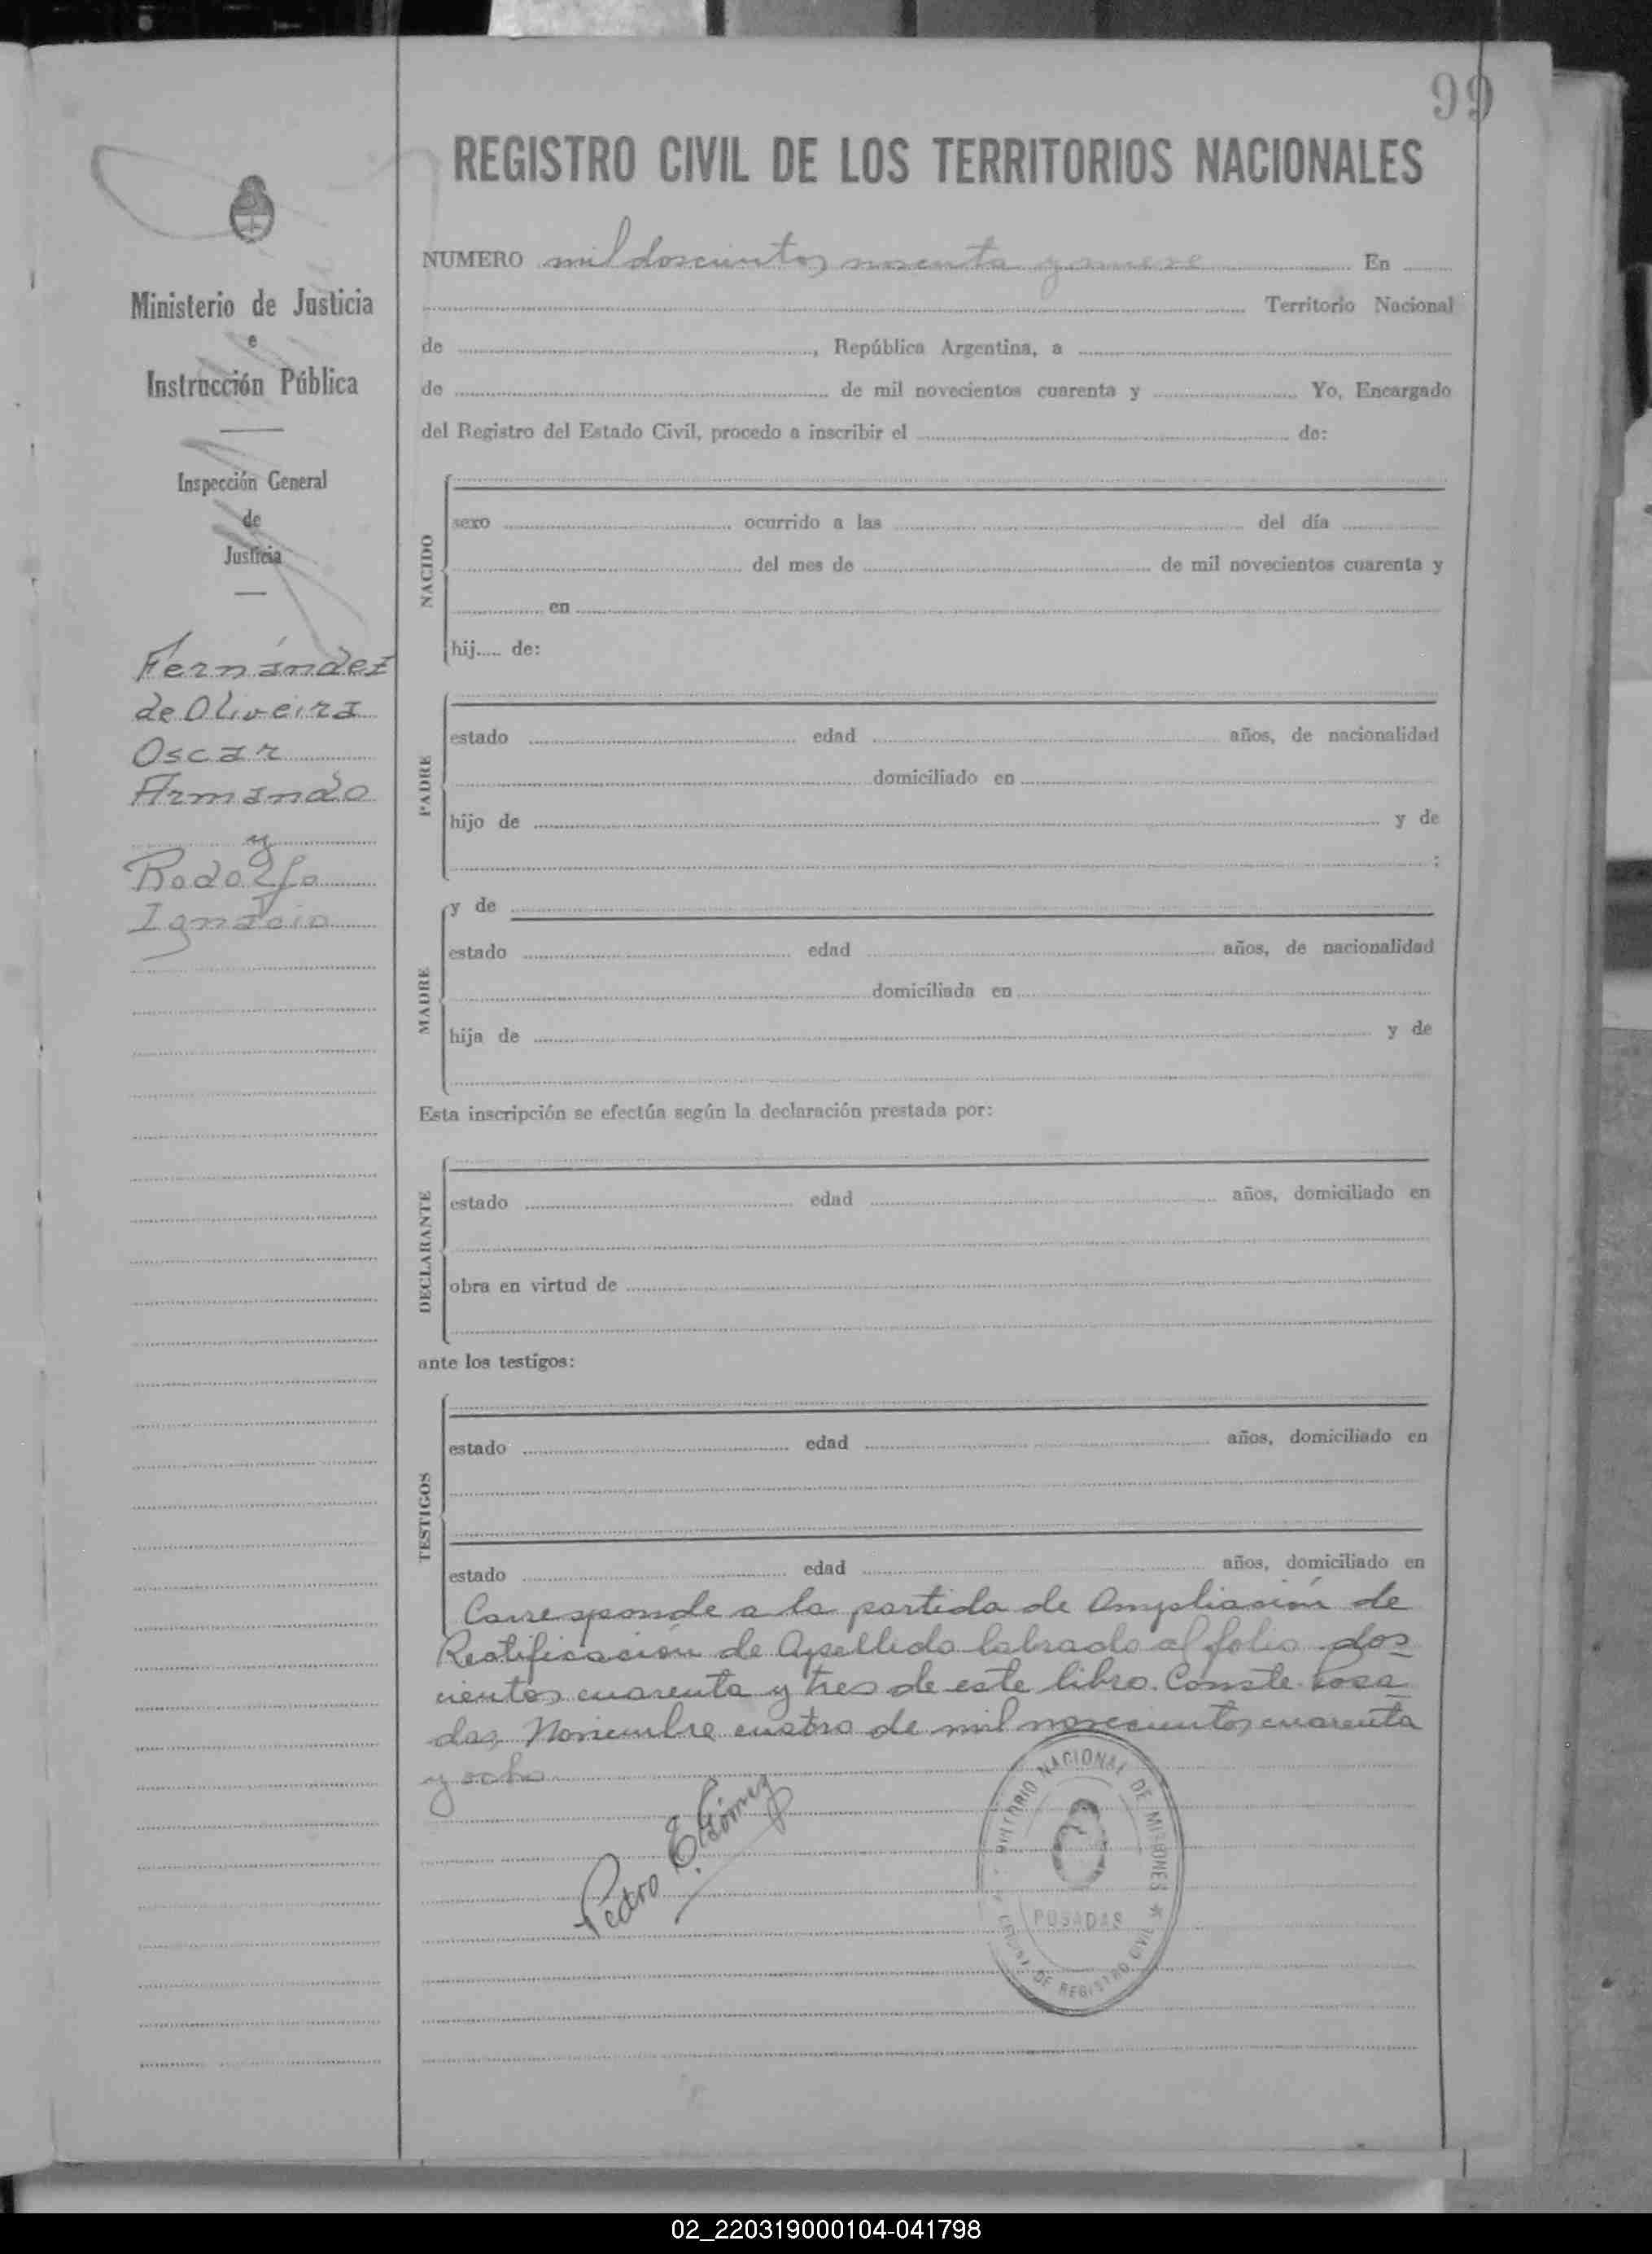 99
REGISTRO CIVIL DE LOS TERRITORIOS NACIONALES
Ministerio de Justicia
e
Instrucción Pública
Inspección General
de
Justicia
Fernández
de Oliveira
Oscar
Armando
y
Rodolfo
Ignacio
NUMERO mil doscientos noventa y nueve En
Territorio Nacional
de , República Argentina, a
de de mil novecientos cuarenta y Yo, Encargado
del Registro del Estado Civil, procedo a inscribir el de:
NACIDO
sexo ocurrido a las del día
del mes de de mil novecientos cuarenta y
en
hij..... de:
PADRE
estado edad años, de nacionalidad
domiciliado en
hijo de y de
;
MADRE
y de
estado edad años, de nacionalidad
domiciliada en
hija de y de
Esta inscripción se efectúa según la declaración prestada por:
DECLARANTE
estado edad años, domiciliado en
obra en virtud de
ante los testigos:
TESTIGOS
estado edad años, domiciliado en
estado edad años, domiciliado en
Corresponde a la partida de Ampliación de
Rectificación de Apellido labrado al folio dos-
cientos cuarenta y tres de este libro. Conste. Posa-
das, Noviembre cuatro de mil novecientos cuarenta
y ocho
Pedro E. Gómez
TERRITORIO NACIONAL DE MISIONES
POSADAS
DE REGISTRO CIVIL
02_220319000104-041798